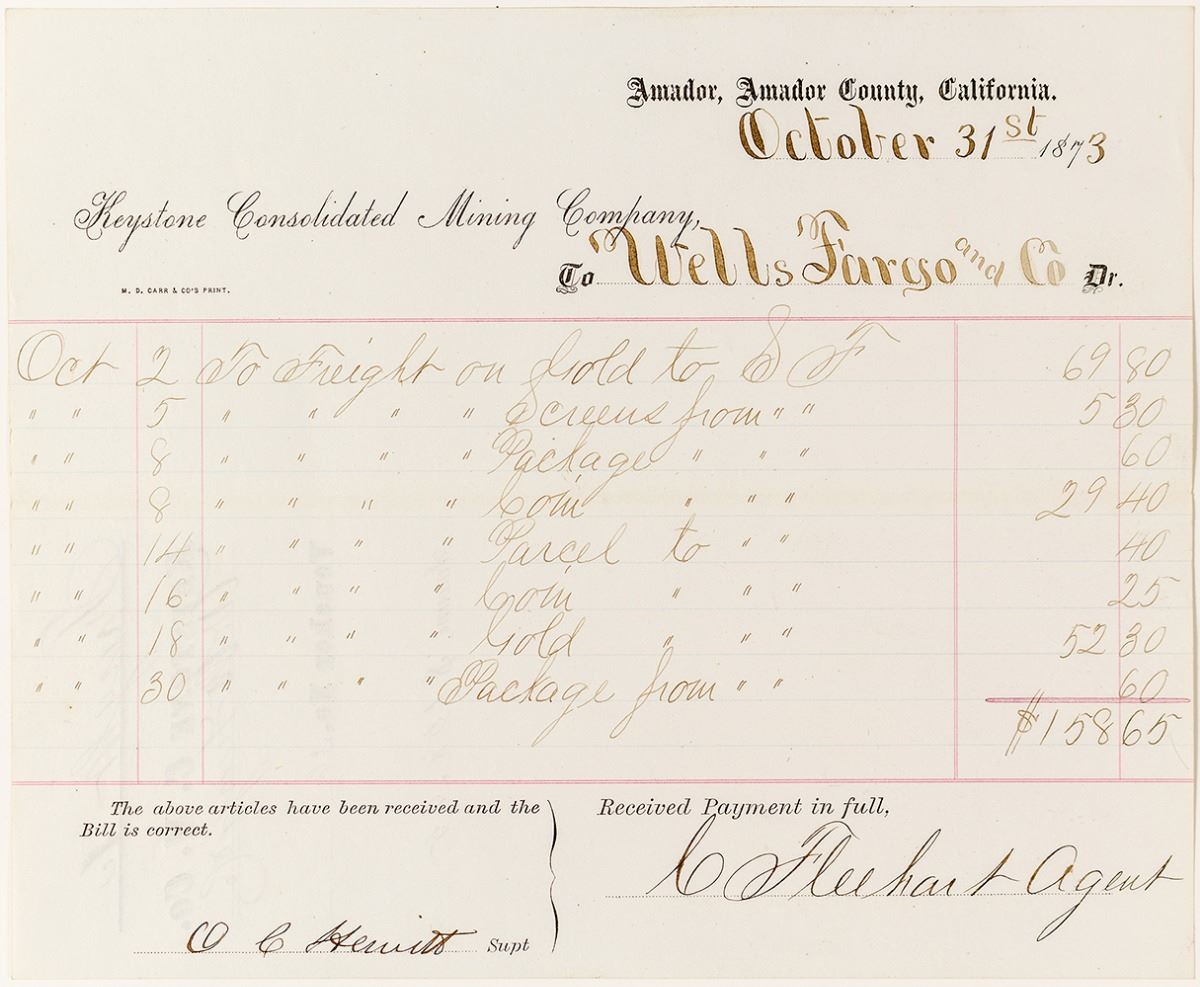 Amador, Amador County, California.
October 31st 1873
Keystone Consolidated Mining Company,
To Wells Fargo and Co Dr.
M. D. CARR & CO'S PRINT.
Oct 2 To Freight on Gold to S F 69 80
" " 5 " " " " Screens from " " 5 30
" " 8 " " " " Package " " " 60
" " 8 " " " " Coin " " " 29 40
" " 14 " " " " Parcel to " " 40
" " 16 " " " " Coin " " " 25
" " 18 " " " " Gold " " " 52 30
" " 30 " " " " Package from " " 60
$158 65
The above articles have been received and the
Bill is correct.
Received Payment in full,
C Fleehart Agent
O C Hewitt Supt